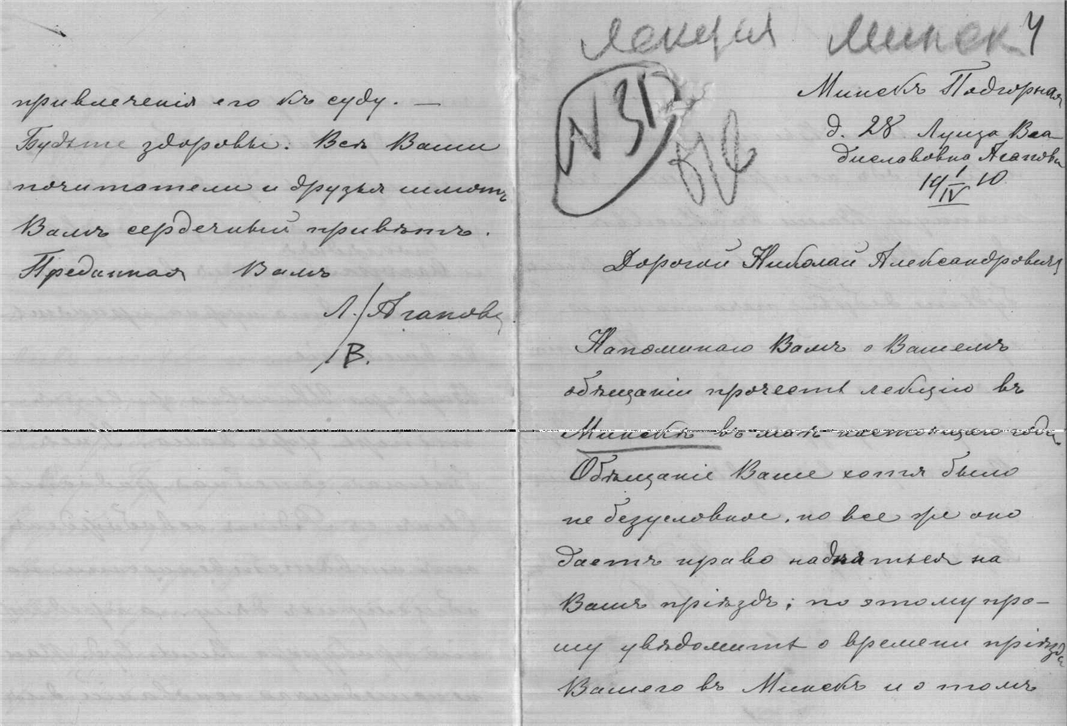 привлеченія его къ суду. —
Будьте здоровы. Всѣ Ваши
почитатели и друзья шлютъ
Вамъ сердечный привѣтъ.
Преданная Вамъ
Л. Агапова
В.
лекция Минск 4
N 31
Минскъ Подгорная
д. 28 Луиза Вла
диславовна Агапова
19 1/IV 10
Дорогой Николай Александровичъ
Напоминаю Вамъ о Вашемъ
обѣщаніи прочесть лекцію въ
Минскѣ въ маѣ настоящаго года
Обѣщаніе Ваше хотя было
не безусловное, но все же оно
даетъ право надѣяться на
Вашъ пріѣздъ; по этому про-
шу увѣдомить о времени пріѣзда
Вашего въ Минскъ и о томъ